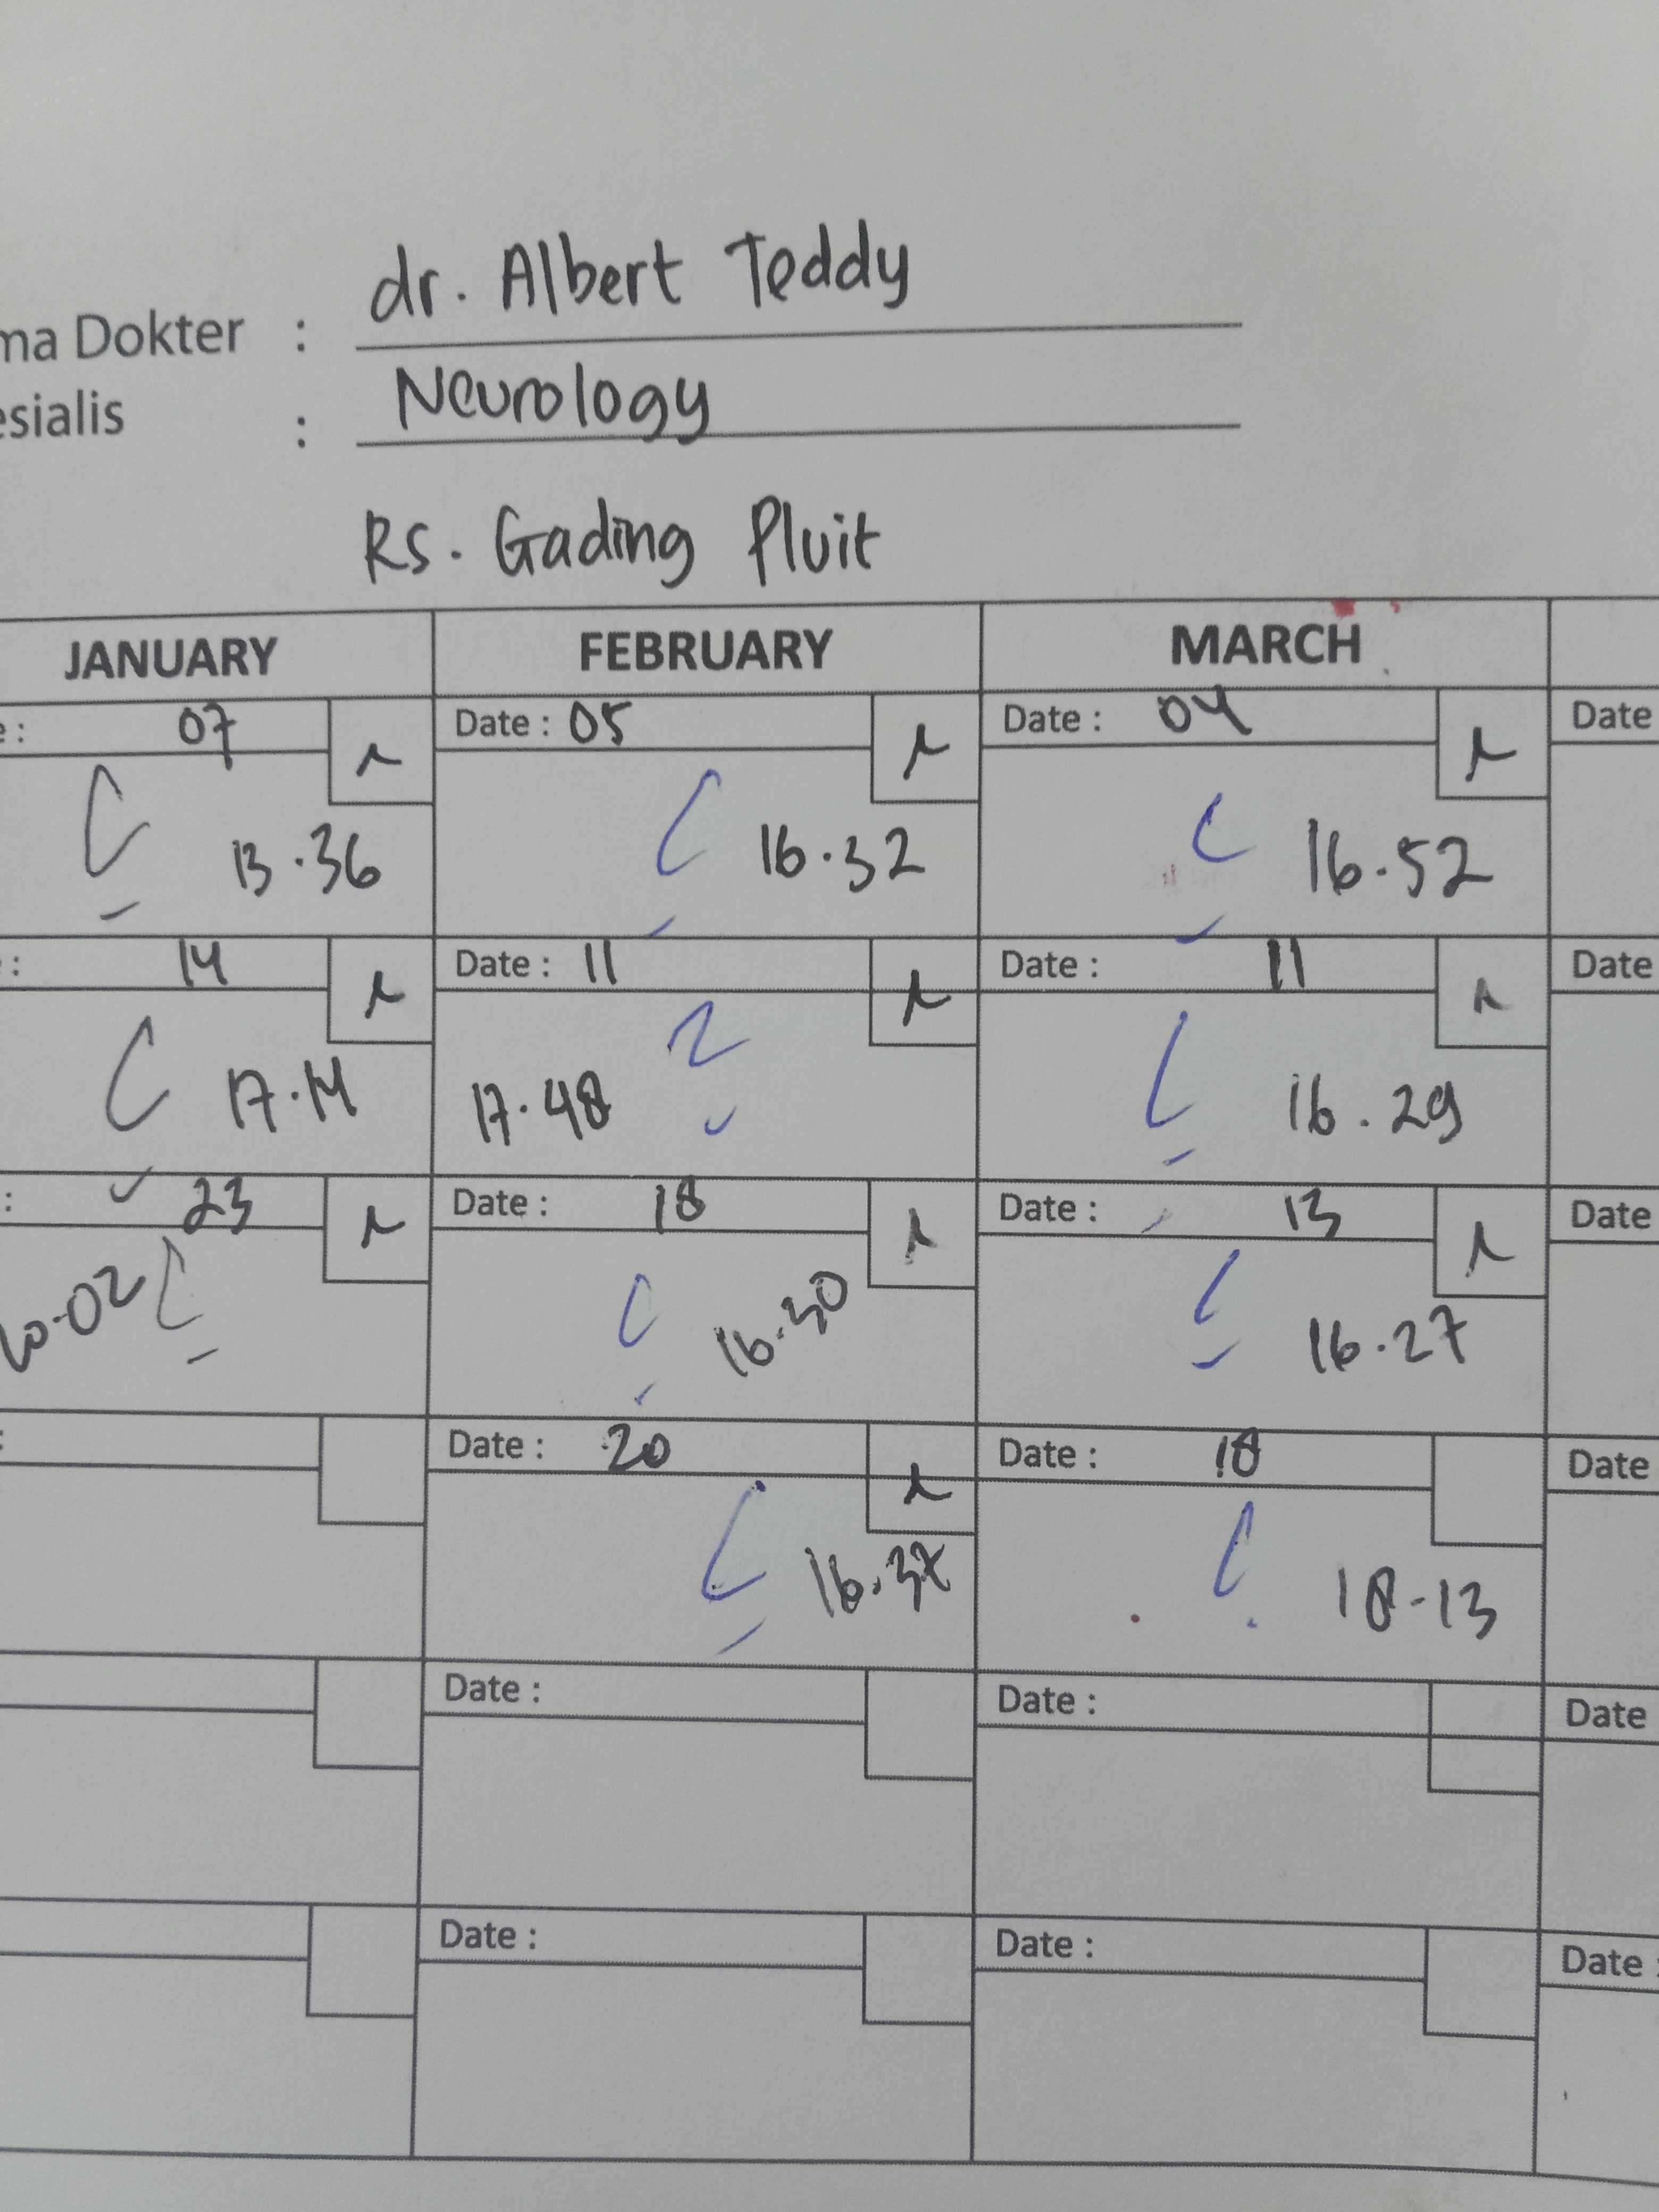 ma Dokter : dr. Albert Teddy
esialis : Neurology
Rs. Gading Pluit
JANUARY FEBRUARY MARCH
: 07 Date : 05 Date : 04 Date
13.36 16.32 16.52
: 14 Date : 11 Date : 11 Date
17.14 17.48 16.29
: 23 Date : 18 Date : 13 Date
16.30 16.27
: Date : 20 Date : 18 Date
18-13
Date : Date : Date
Date : Date : Date :